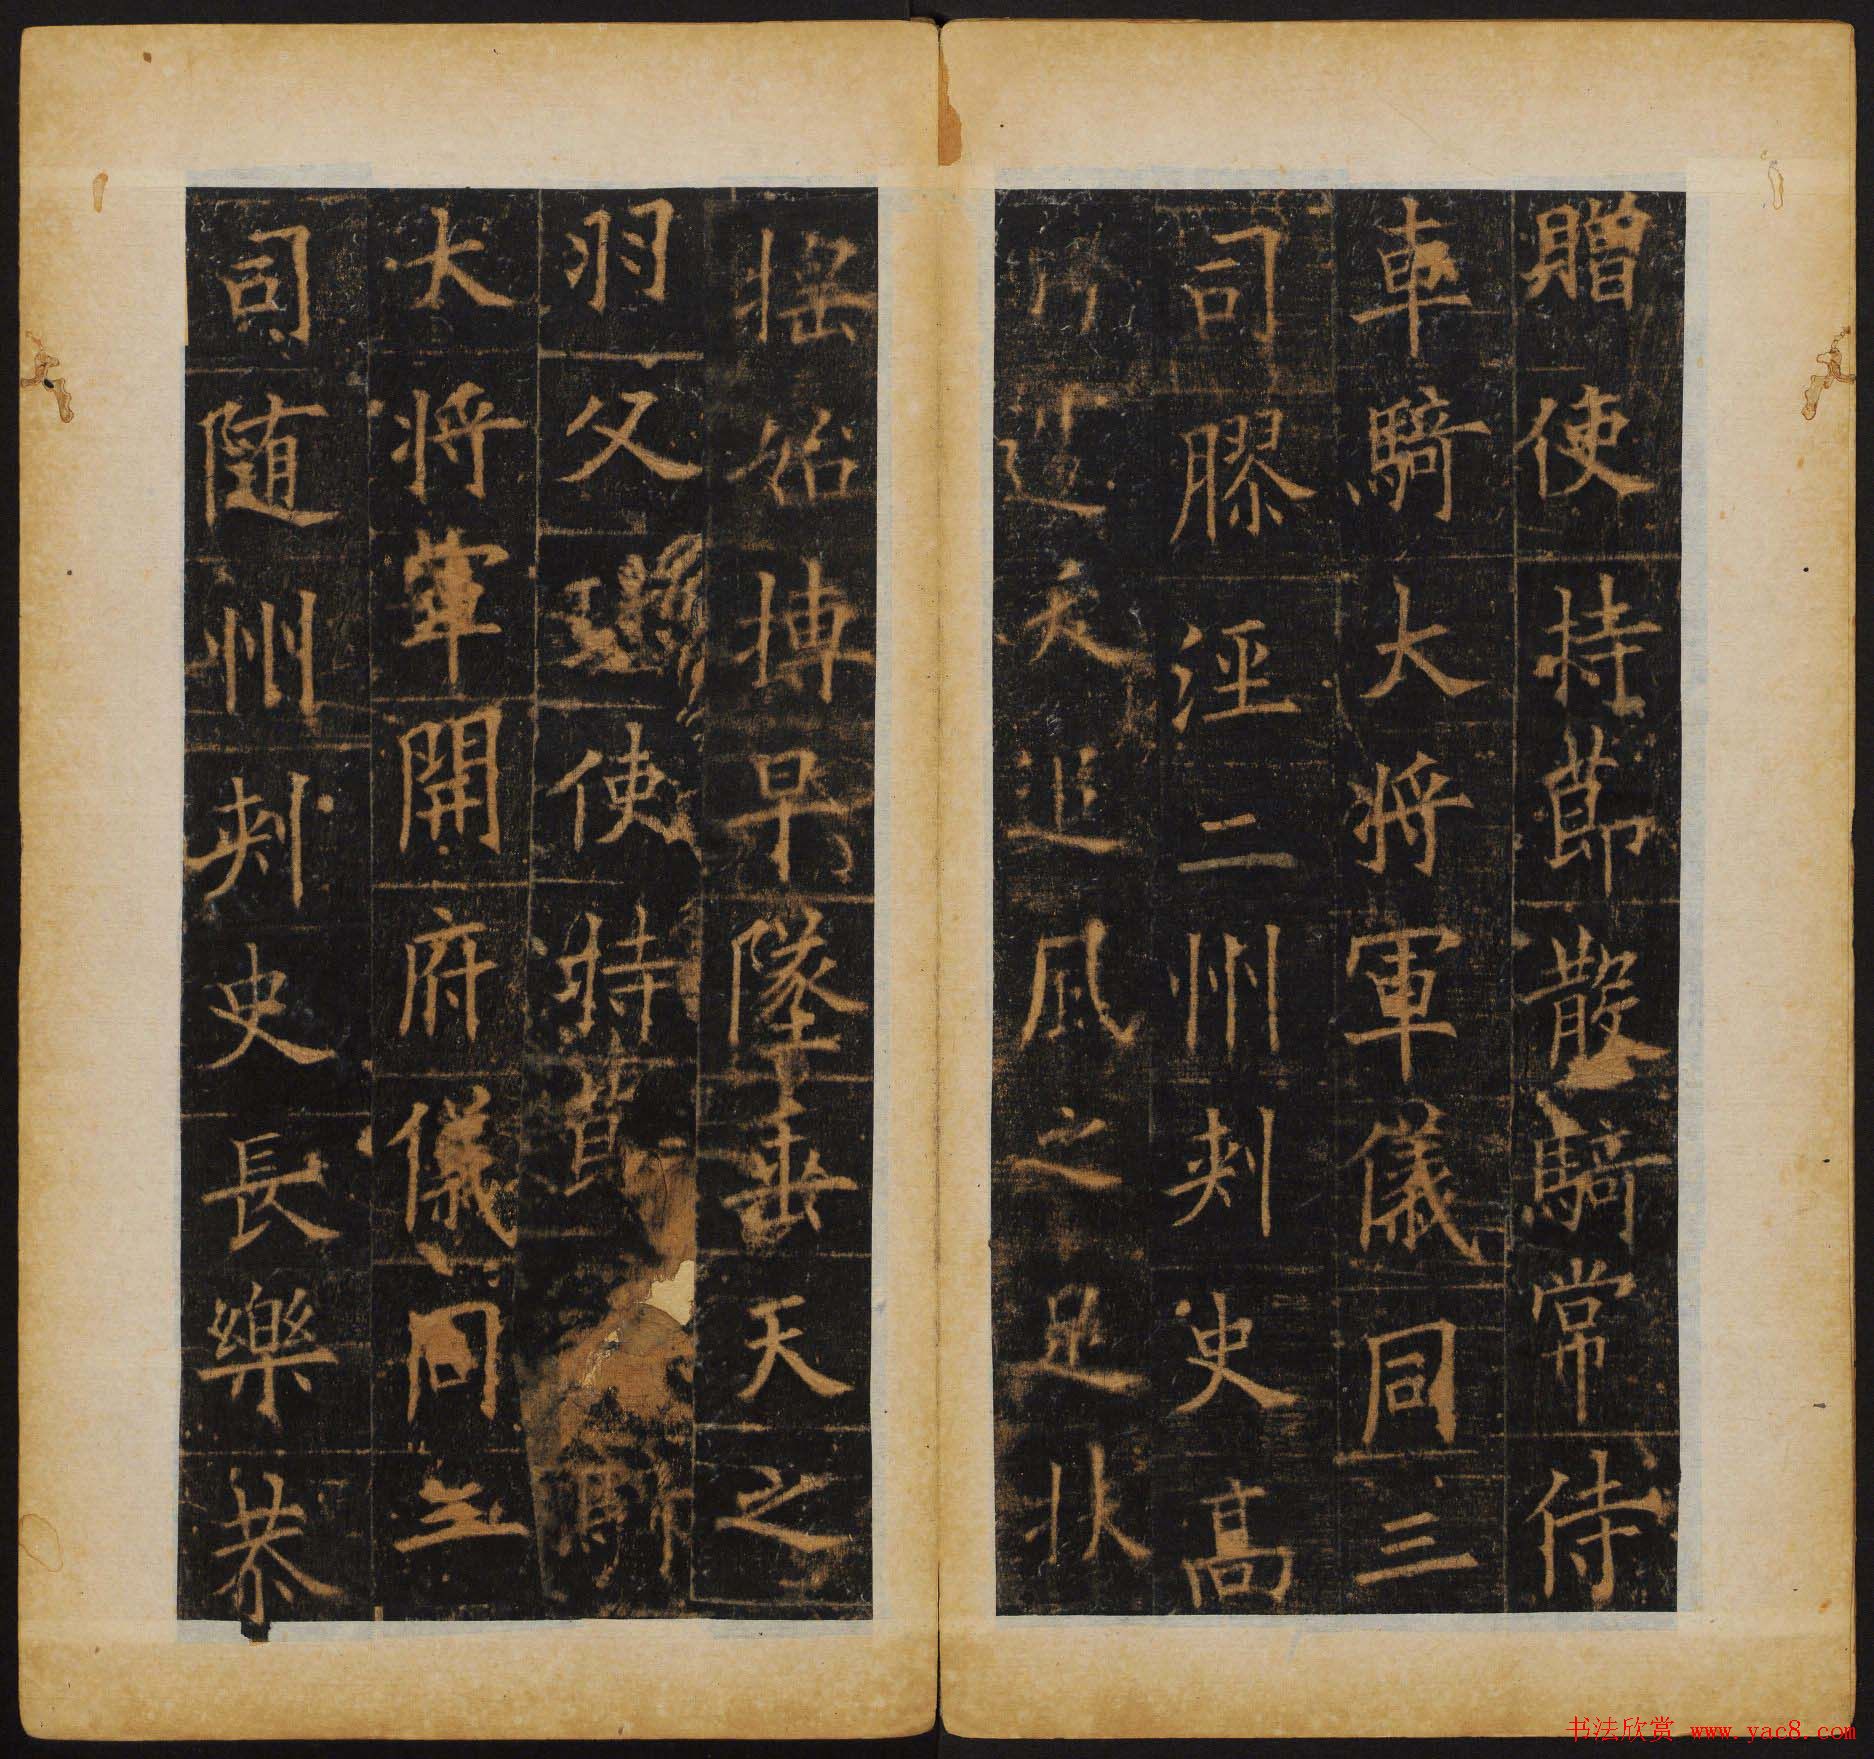 贈使持節散騎常侍
車騎大將軍儀同三
司膠涇二州刺史高
天追風之足扶
搖始搏早墜垂天之
羽父使持
大將軍開府儀同三
司隨州刺史長樂恭
书法欣赏 www.yac8.com